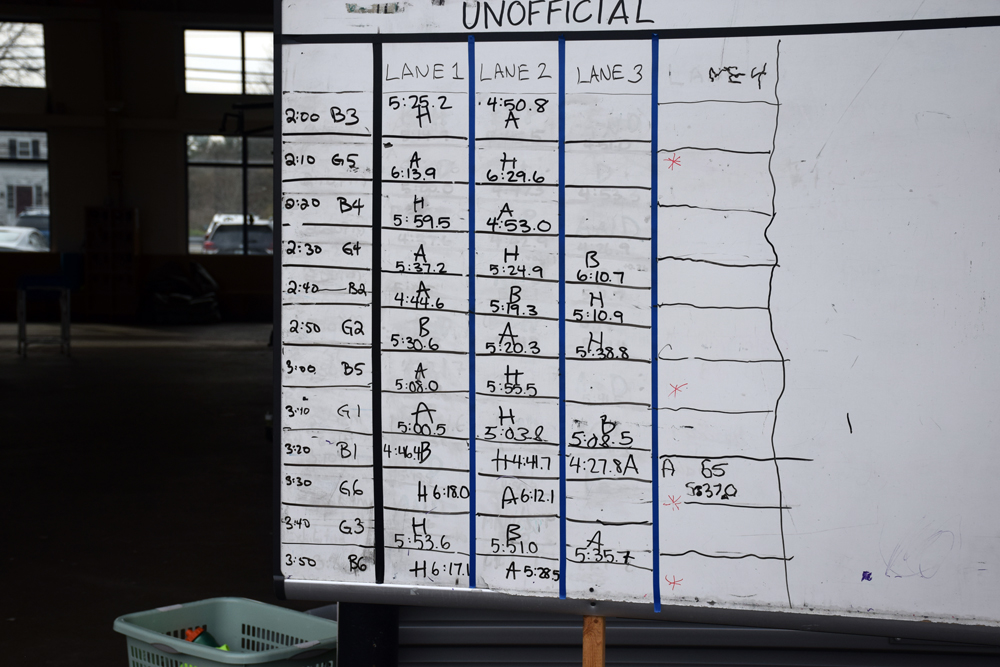 UNOFFICIAL
LANE 1 LANE 2 LANE 3
2:00 B3 5:25.2 H 4:50.8 A
2:10 G5 A 6:13.9 H 6:29.6 *
2:20 B4 H 5:59.5 A 4:53.0
2:30 G4 A 5:37.2 H 5:24.9 B 6:10.7
2:40 B2 A 4:44.6 B 5:19.3 H 5:10.9
2:50 G2 B 5:30.6 A 5:20.3 H 5:38.8
3:00 B5 A 5:08.0 H 5:55.5 *
3:10 G1 A 5:00.5 H 5:03.8 B 5:08.5
3:20 B1 4:46.4 B H 4:41.7 4:27.8 A A G5
3:30 G6 H 6:18.0 A 6:12.1 *
3:40 G3 H 5:53.6 B 5:51.0 A 5:35.7
3:50 B6 H 6:17.1 A 5:28.5 *